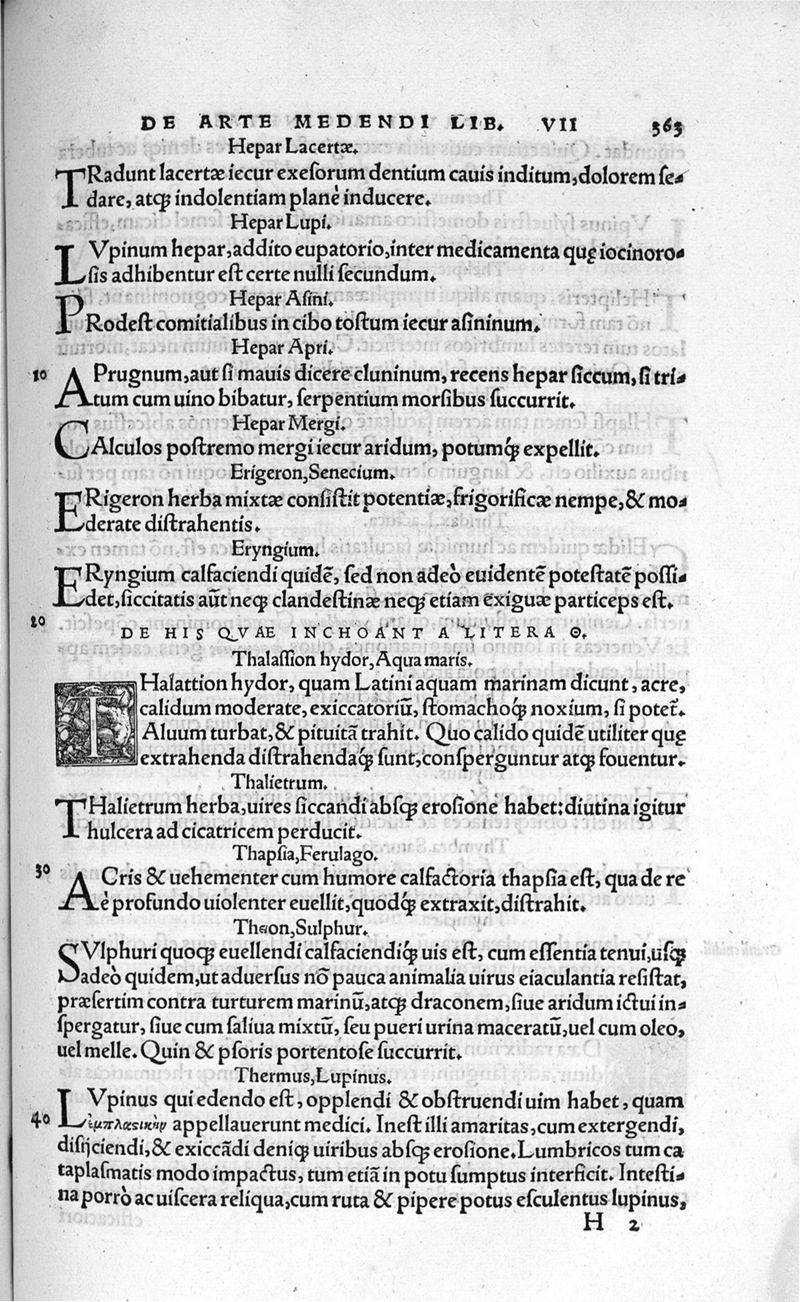 DE ARTE MEDENDI LIB. VII 363
Hepar Lacertæ.
TRadunt lacertæ iecur exeſorum dentium cauis inditum, dolorem ſe-
dare, atq́; indolentiam planè inducere.
Hepar Lupi.
LVpinum hepar, addito eupatorio, inter medicamenta quę iocinoro-
ſis adhibentur eſt certe nulli ſecundum.
Hepar Aſini.
PRodeſt comitialibus in cibo toſtum iecur aſininum.
Hepar Apri.
10 APrugnum, aut ſi mauis dicere cluninum, recens hepar ſiccum, ſi tri-
tum cum uino bibatur, ſerpentium morſibus ſuccurrit.
Hepar Mergi.
CAlculos poſtremo mergi iecur aridum, potumq́; expellit.
Erigeron, Senecium.
ERigeron herba mixtæ conſiſtit potentiæ, frigorificæ nempe, & mo-
derate diſtrahentis.
Eryngium.
ERyngium calfaciendi quidē, ſed non adeò euidentē poteſtatē poſſi-
det, ſiccitatis aūt neq; clandeſtinæ neq; etiam exiguæ particeps eſt.
20
DE HIS QVAE INCHOANT A LITERA Θ.
Thalaſſion hydor, Aqua maris.
THalattion hydor, quam Latini aquam marinam dicunt, acre,
calidum moderate, exiccatoriū, ſtomachoq́; noxium, ſi potet̃.
Aluum turbat, & pituitā trahit. Quo calido quidē utiliter quę
extrahenda diſtrahendaq́; ſunt, conſperguntur atq; fouentur.
Thalietrum.
THalietrum herba, uires ſiccandi abſq; eroſione habet: diutina igitur
hulcera ad cicatricem perducit.
Thapſia, Ferulago.
30 ACris & uehementer cum humore calfactoria thapſia eſt, qua de re
è profundo uiolenter euellit, quodq́; extraxit, diſtrahit.
Theion, Sulphur.
SVlphuri quoq; euellendi calfaciendiq́; uis eſt, cum eſſentia tenui, uſq;
adeò quidem, ut aduerſus nō pauca animalia uirus eiaculantia reſiſtat,
præſertim contra turturem marinū, atq; draconem, ſiue aridum ictui in-
ſpergatur, ſiue cum ſaliua mixtū, ſeu pueri urina maceratū, uel cum oleo,
uel melle. Quin & pſoris portentoſe ſuccurrit.
Thermus, Lupinus.
LVpinus qui edendo eſt, opplendi & obſtruendi uim habet, quam
40 ἐμπλαϛικὴν appellauerunt medici. Ineſt illi amaritas, cum extergendi,
diſijciendi, & exiccādi deniq; uiribus abſq; eroſione. Lumbricos tum ca
taplaſmatis modo impactus, tum etiā in potu ſumptus interficit. Inteſti-
na porrò ac uiſcera reliqua, cum ruta & pipere potus eſculentus lupinus,
H 2